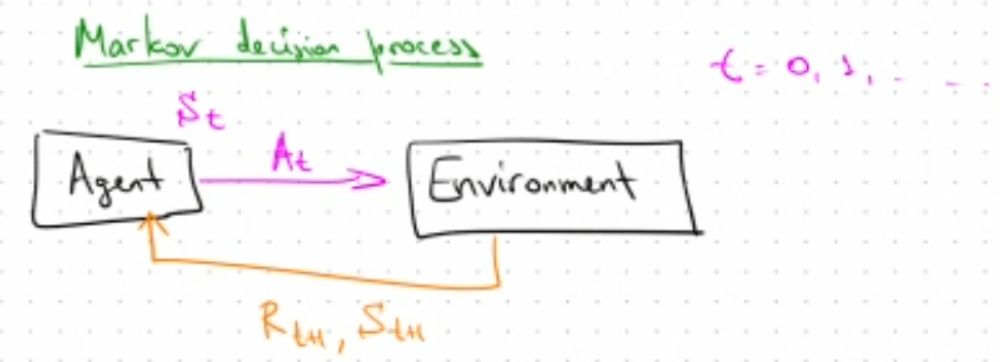 Markov decision process
t = 0, 1, . . .
S_t
Agent
A_t
Environment
R_{t+1}, S_{t+1}